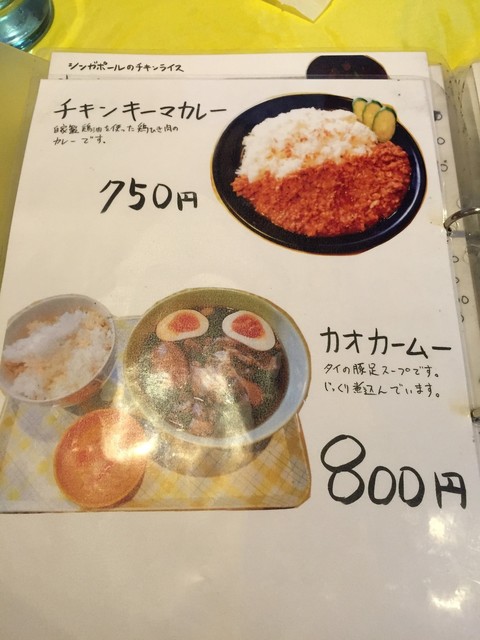 シンガポールのチキンライス
チキンキーマカレー
自家製鶏油を使った鶏ひき肉の
カレーです。
750円
カオカームー
タイの豚足スープです。
じっくり煮込んでいます。
800円